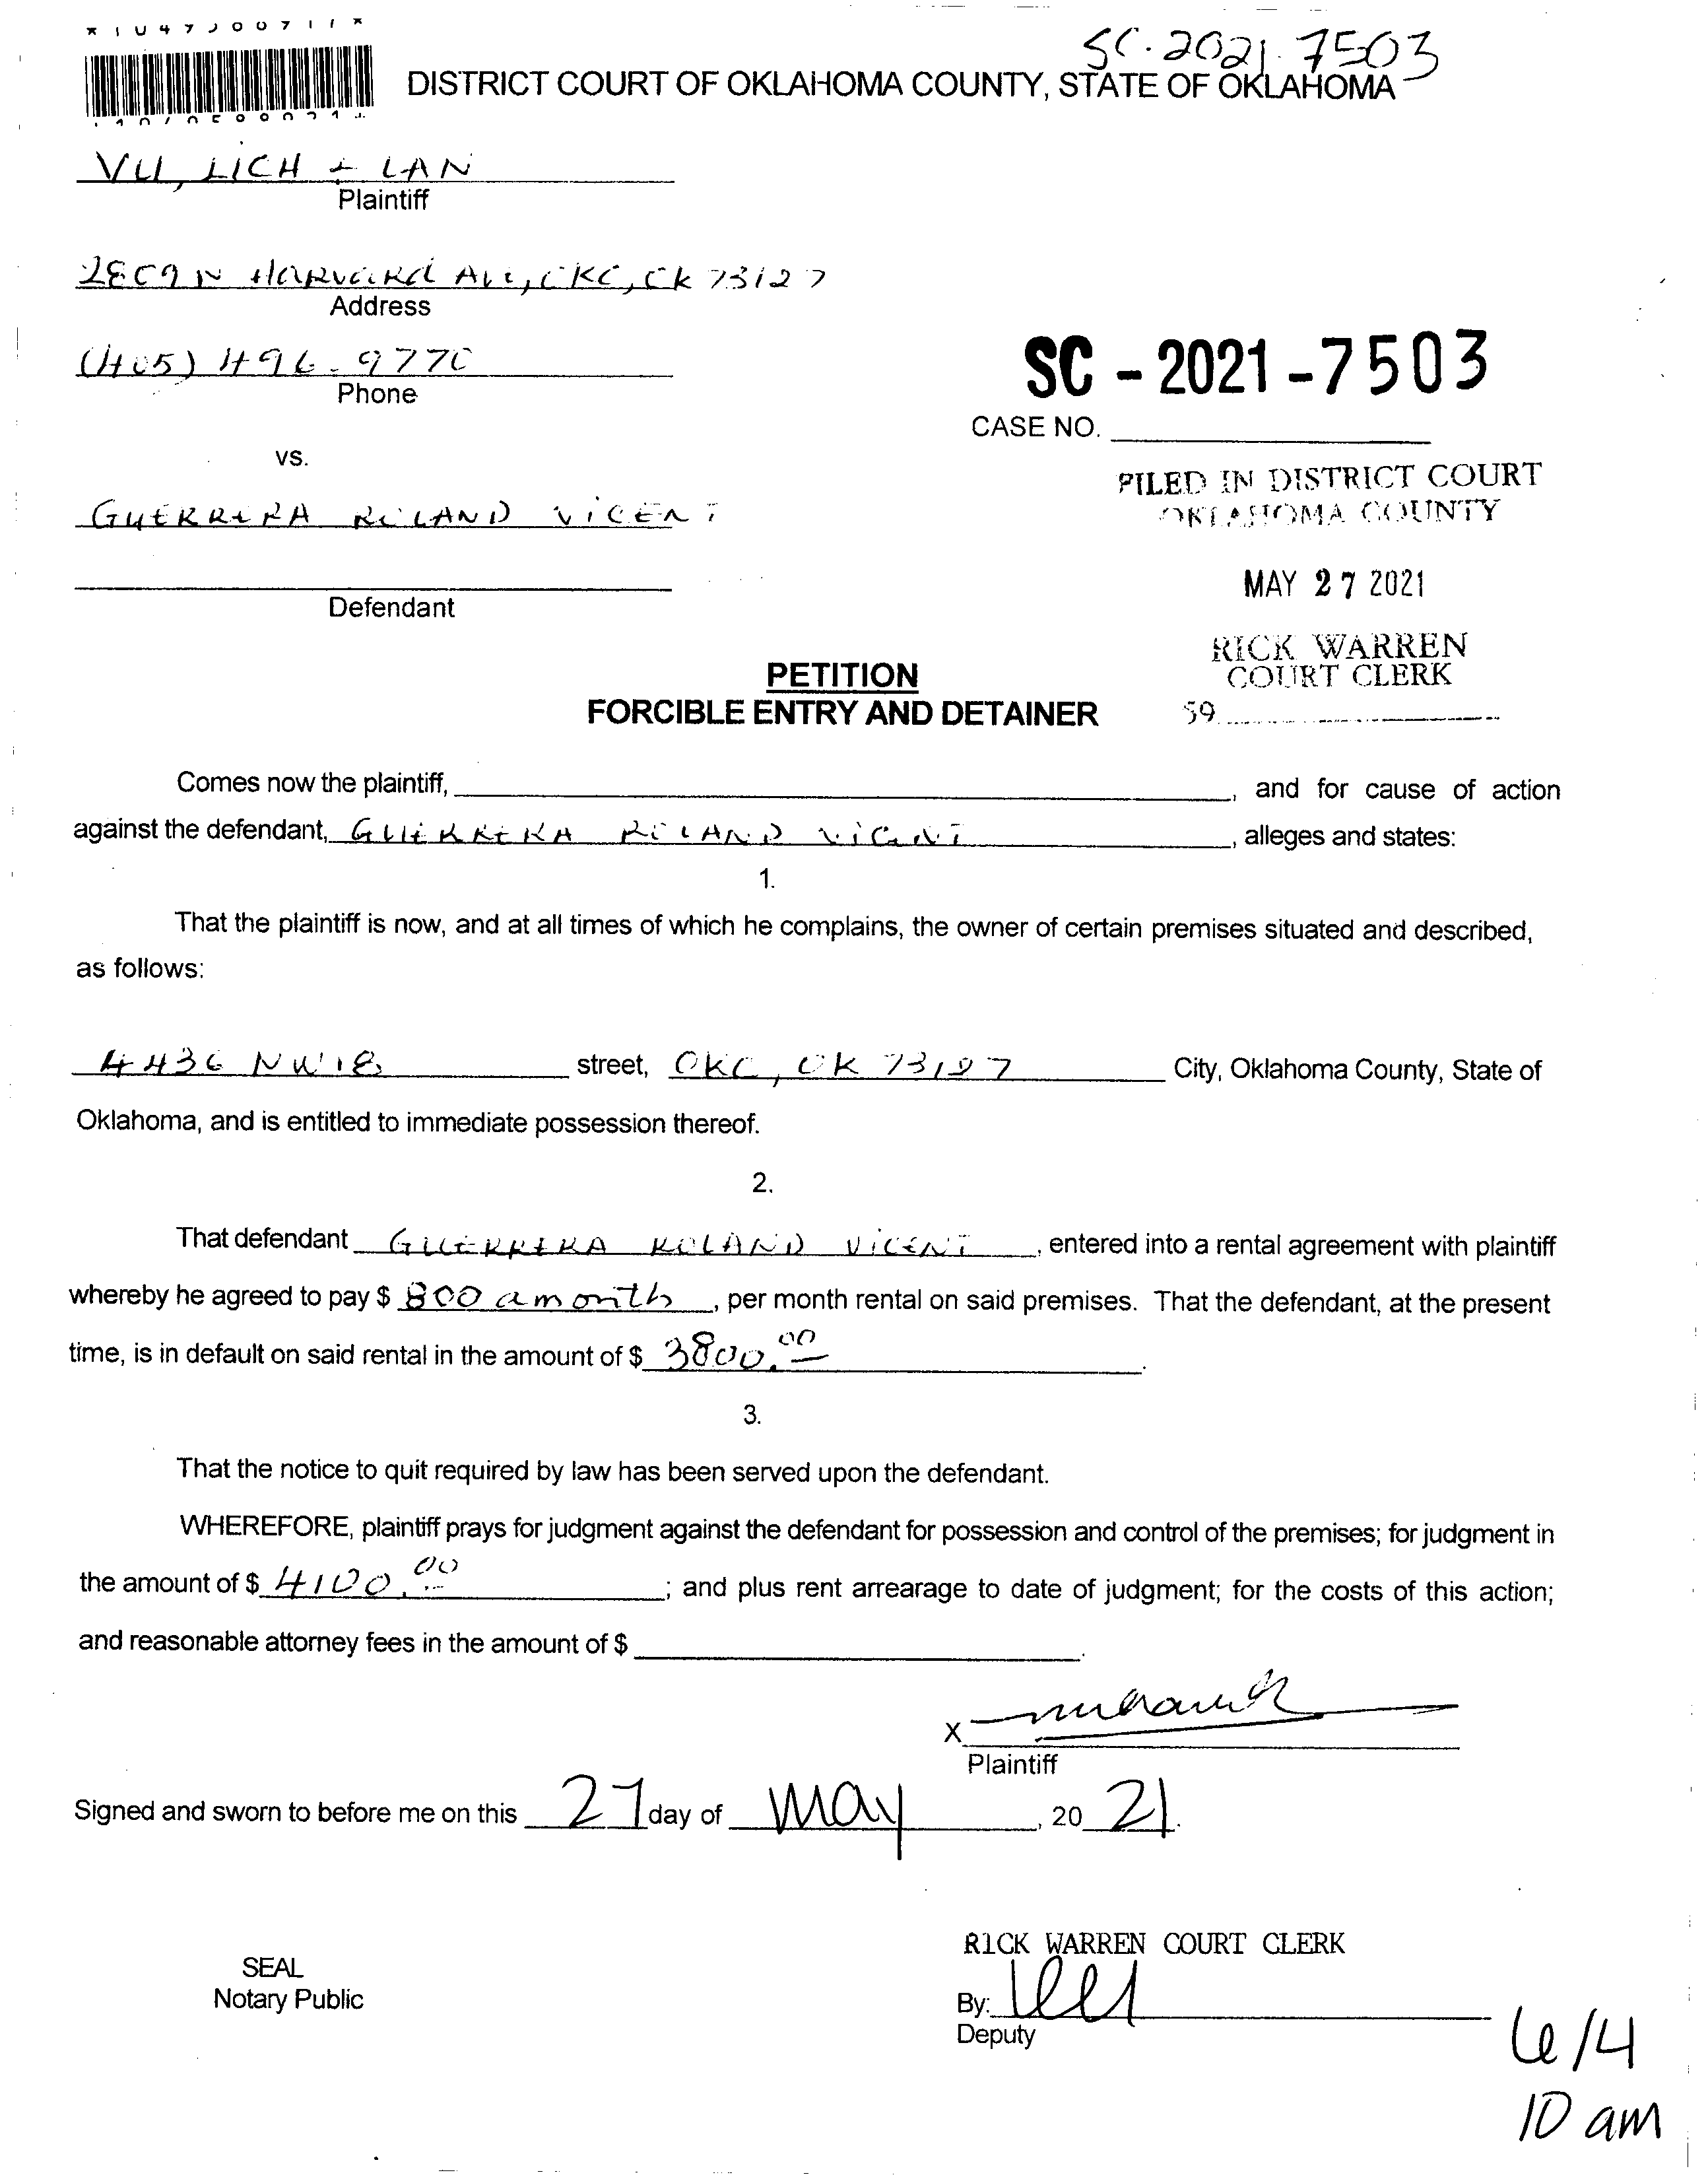 SC-2021-7503
DISTRICT COURT OF OKLAHOMA COUNTY, STATE OF OKLAHOMA
VU, LICH + LAN
Plaintiff
2809 N HARVARD AVE, OKC, OK 73127
Address
(405) 496-9770
Phone
SC - 2021 - 7503
CASE NO.
vs.
FILED IN DISTRICT COURT
OKLAHOMA COUNTY
GUERRERA ROLAND VICENT
MAY 27 2021
Defendant
RICK WARREN
COURT CLERK
59
PETITION
FORCIBLE ENTRY AND DETAINER
Comes now the plaintiff, , and for cause of action
against the defendant, GUERRERA ROLAND VICENT , alleges and states:
1.
That the plaintiff is now, and at all times of which he complains, the owner of certain premises situated and described,
as follows:
4436 NW 18 street, OKC, OK 73127 City, Oklahoma County, State of
Oklahoma, and is entitled to immediate possession thereof.
2.
That defendant GUERRERA ROLAND VICENT , entered into a rental agreement with plaintiff
whereby he agreed to pay $ 800 a month , per month rental on said premises. That the defendant, at the present
time, is in default on said rental in the amount of $ 3800.00 .
3.
That the notice to quit required by law has been served upon the defendant.
WHEREFORE, plaintiff prays for judgment against the defendant for possession and control of the premises; for judgment in
the amount of $ 4100.00 ; and plus rent arrearage to date of judgment; for the costs of this action;
and reasonable attorney fees in the amount of $ .
X
Plaintiff
Signed and sworn to before me on this 27 day of May , 20 21.
RICK WARREN COURT CLERK
SEAL
Notary Public
By:
Deputy
6/4
10 am